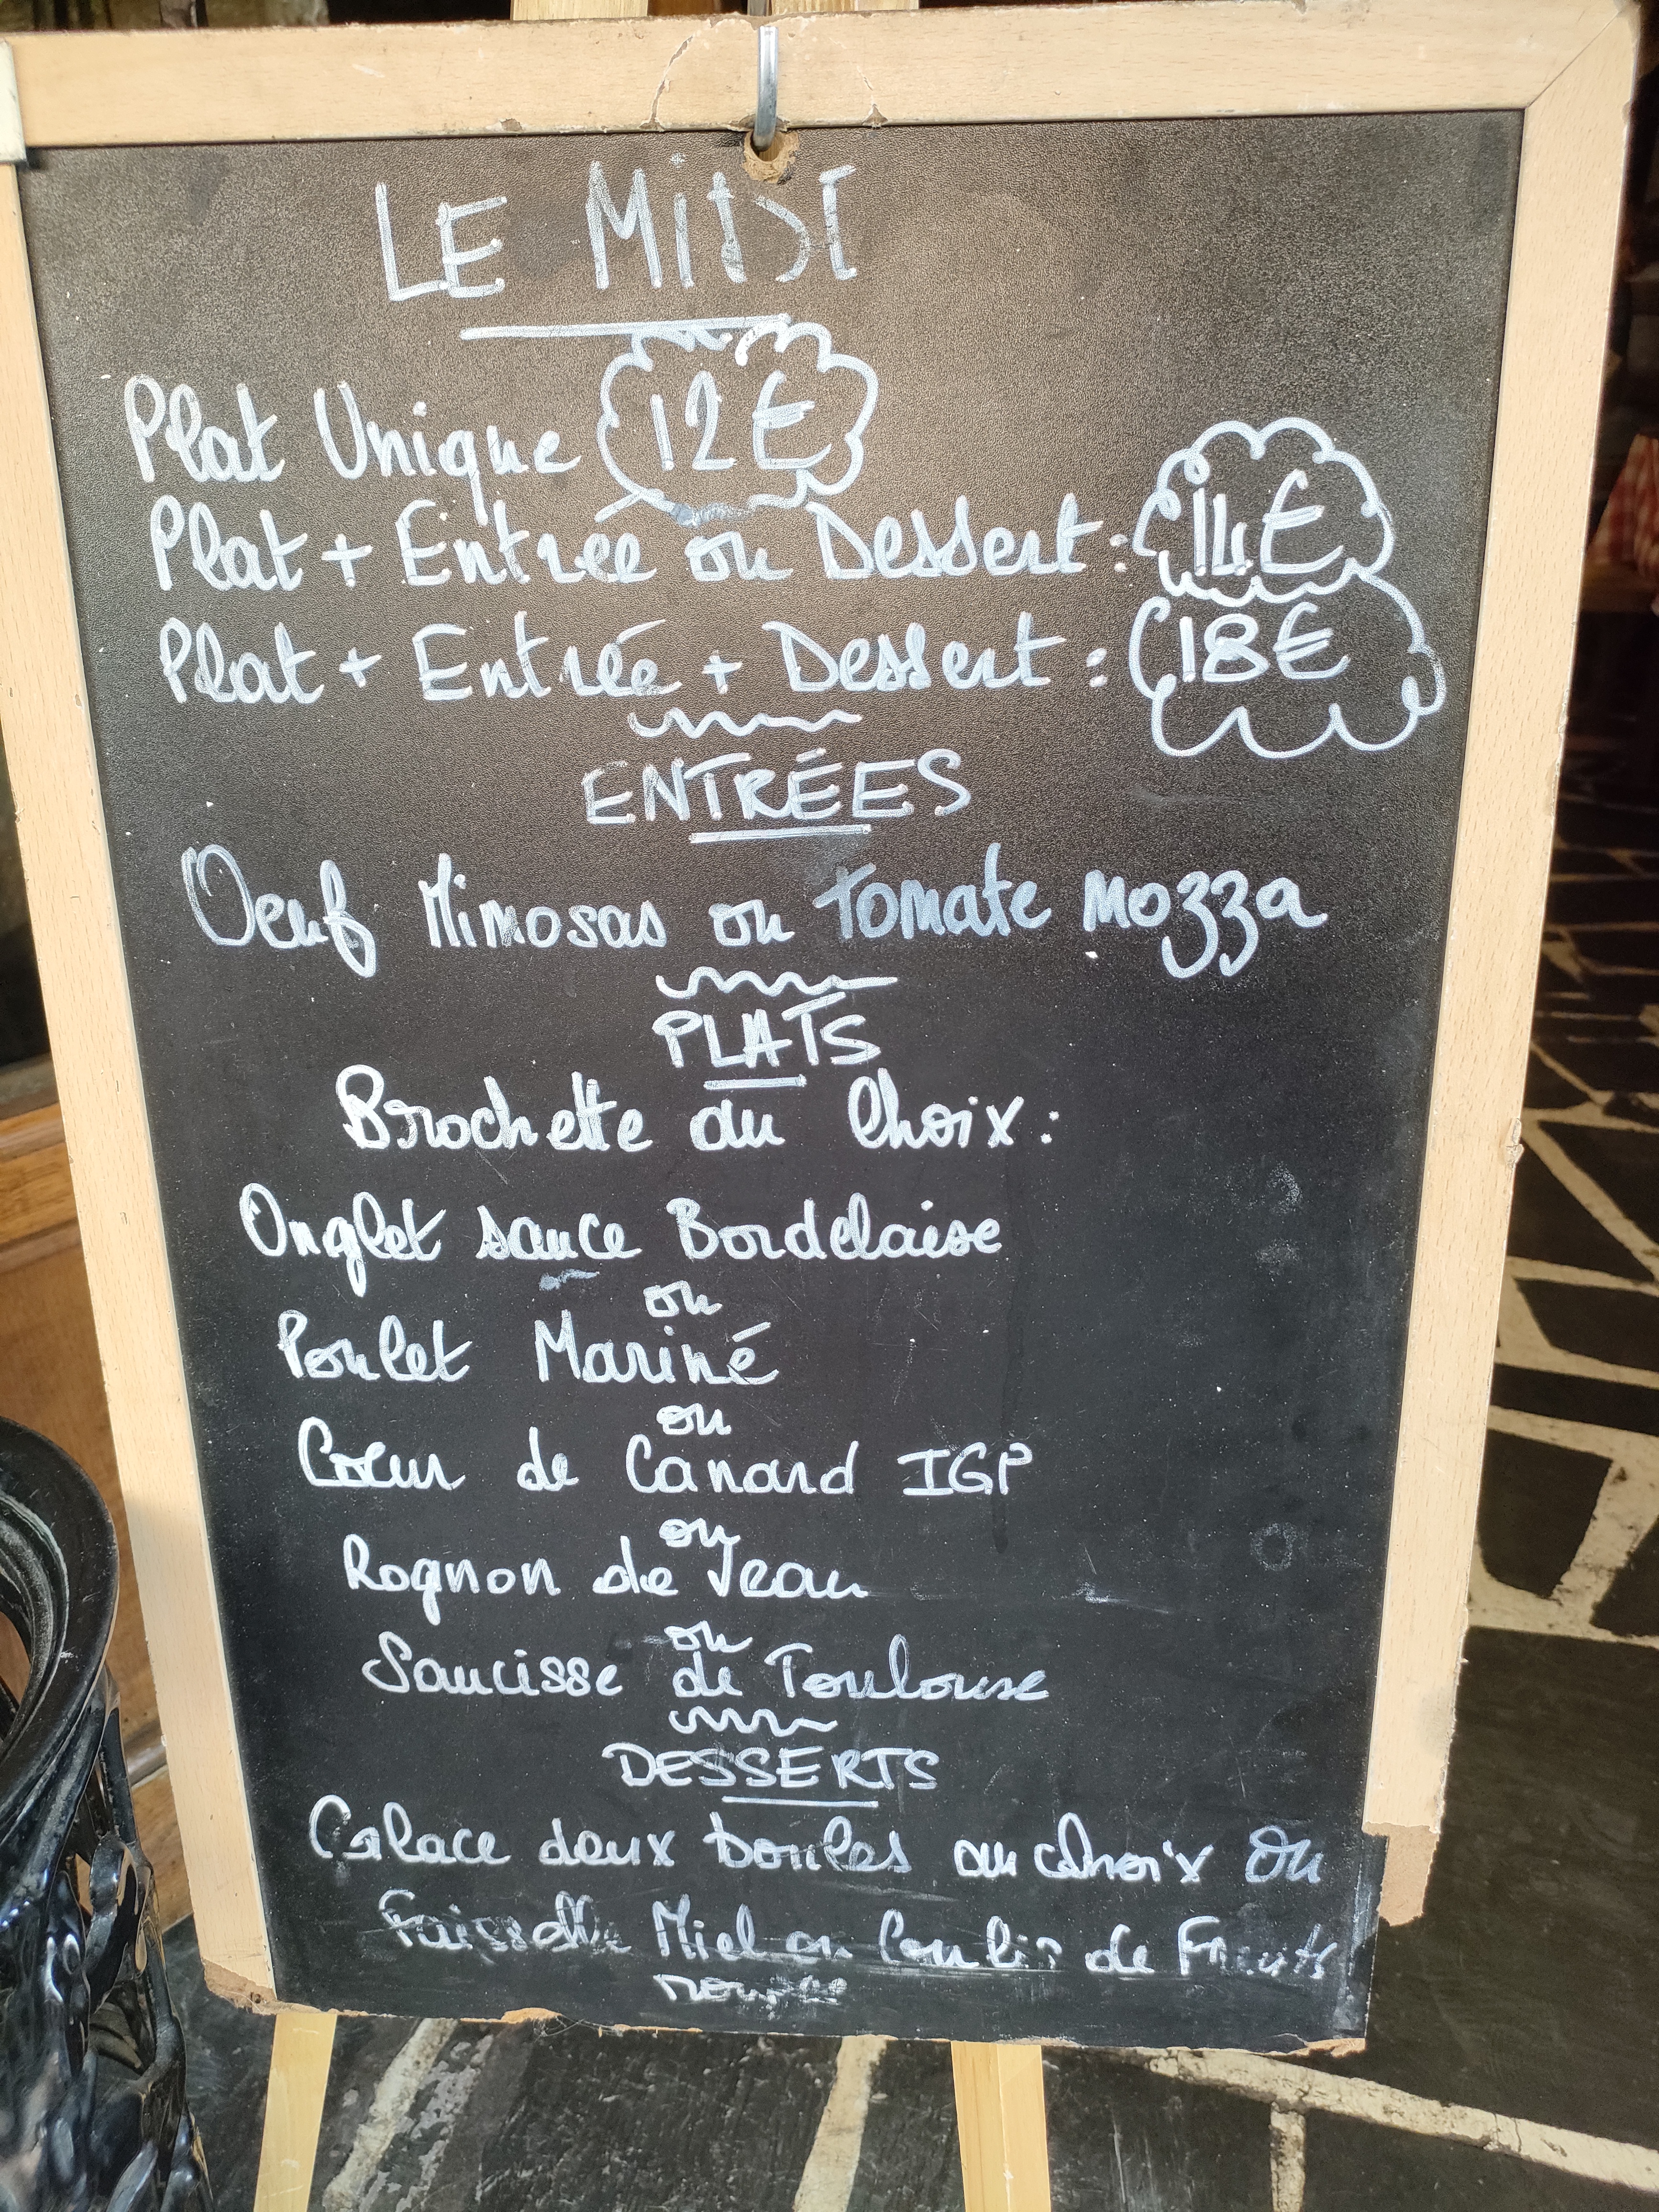 LE MiDI
Plat Unique 12€
Plat + Entrée ou Dessert : 14€
Plat + Entrée + Dessert : 18€
ENTRÉES
Oeuf Mimosas ou Tomate Mozza
PLATS
Brochette au Choix :
Onglet sauce Bordelaise
ou
Poulet Mariné
ou
Coeur de Canard IGP
ou
Rognon de Veau
ou
Saucisse de Toulouse
DESSERTS
Glace deux boules au choix ou
Faisselle Miel ou Coulis de Fruits
rouges